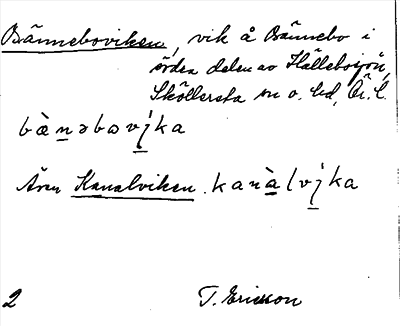 Bänneboviken, vik å Bännebo i
södra delen av Hällebosjön,
Sköllersta sn o. hd, Ör. l.
bànəbovi̯ka
Även Kanalviken. kanàlvi̯ka
2 T. Ericsson